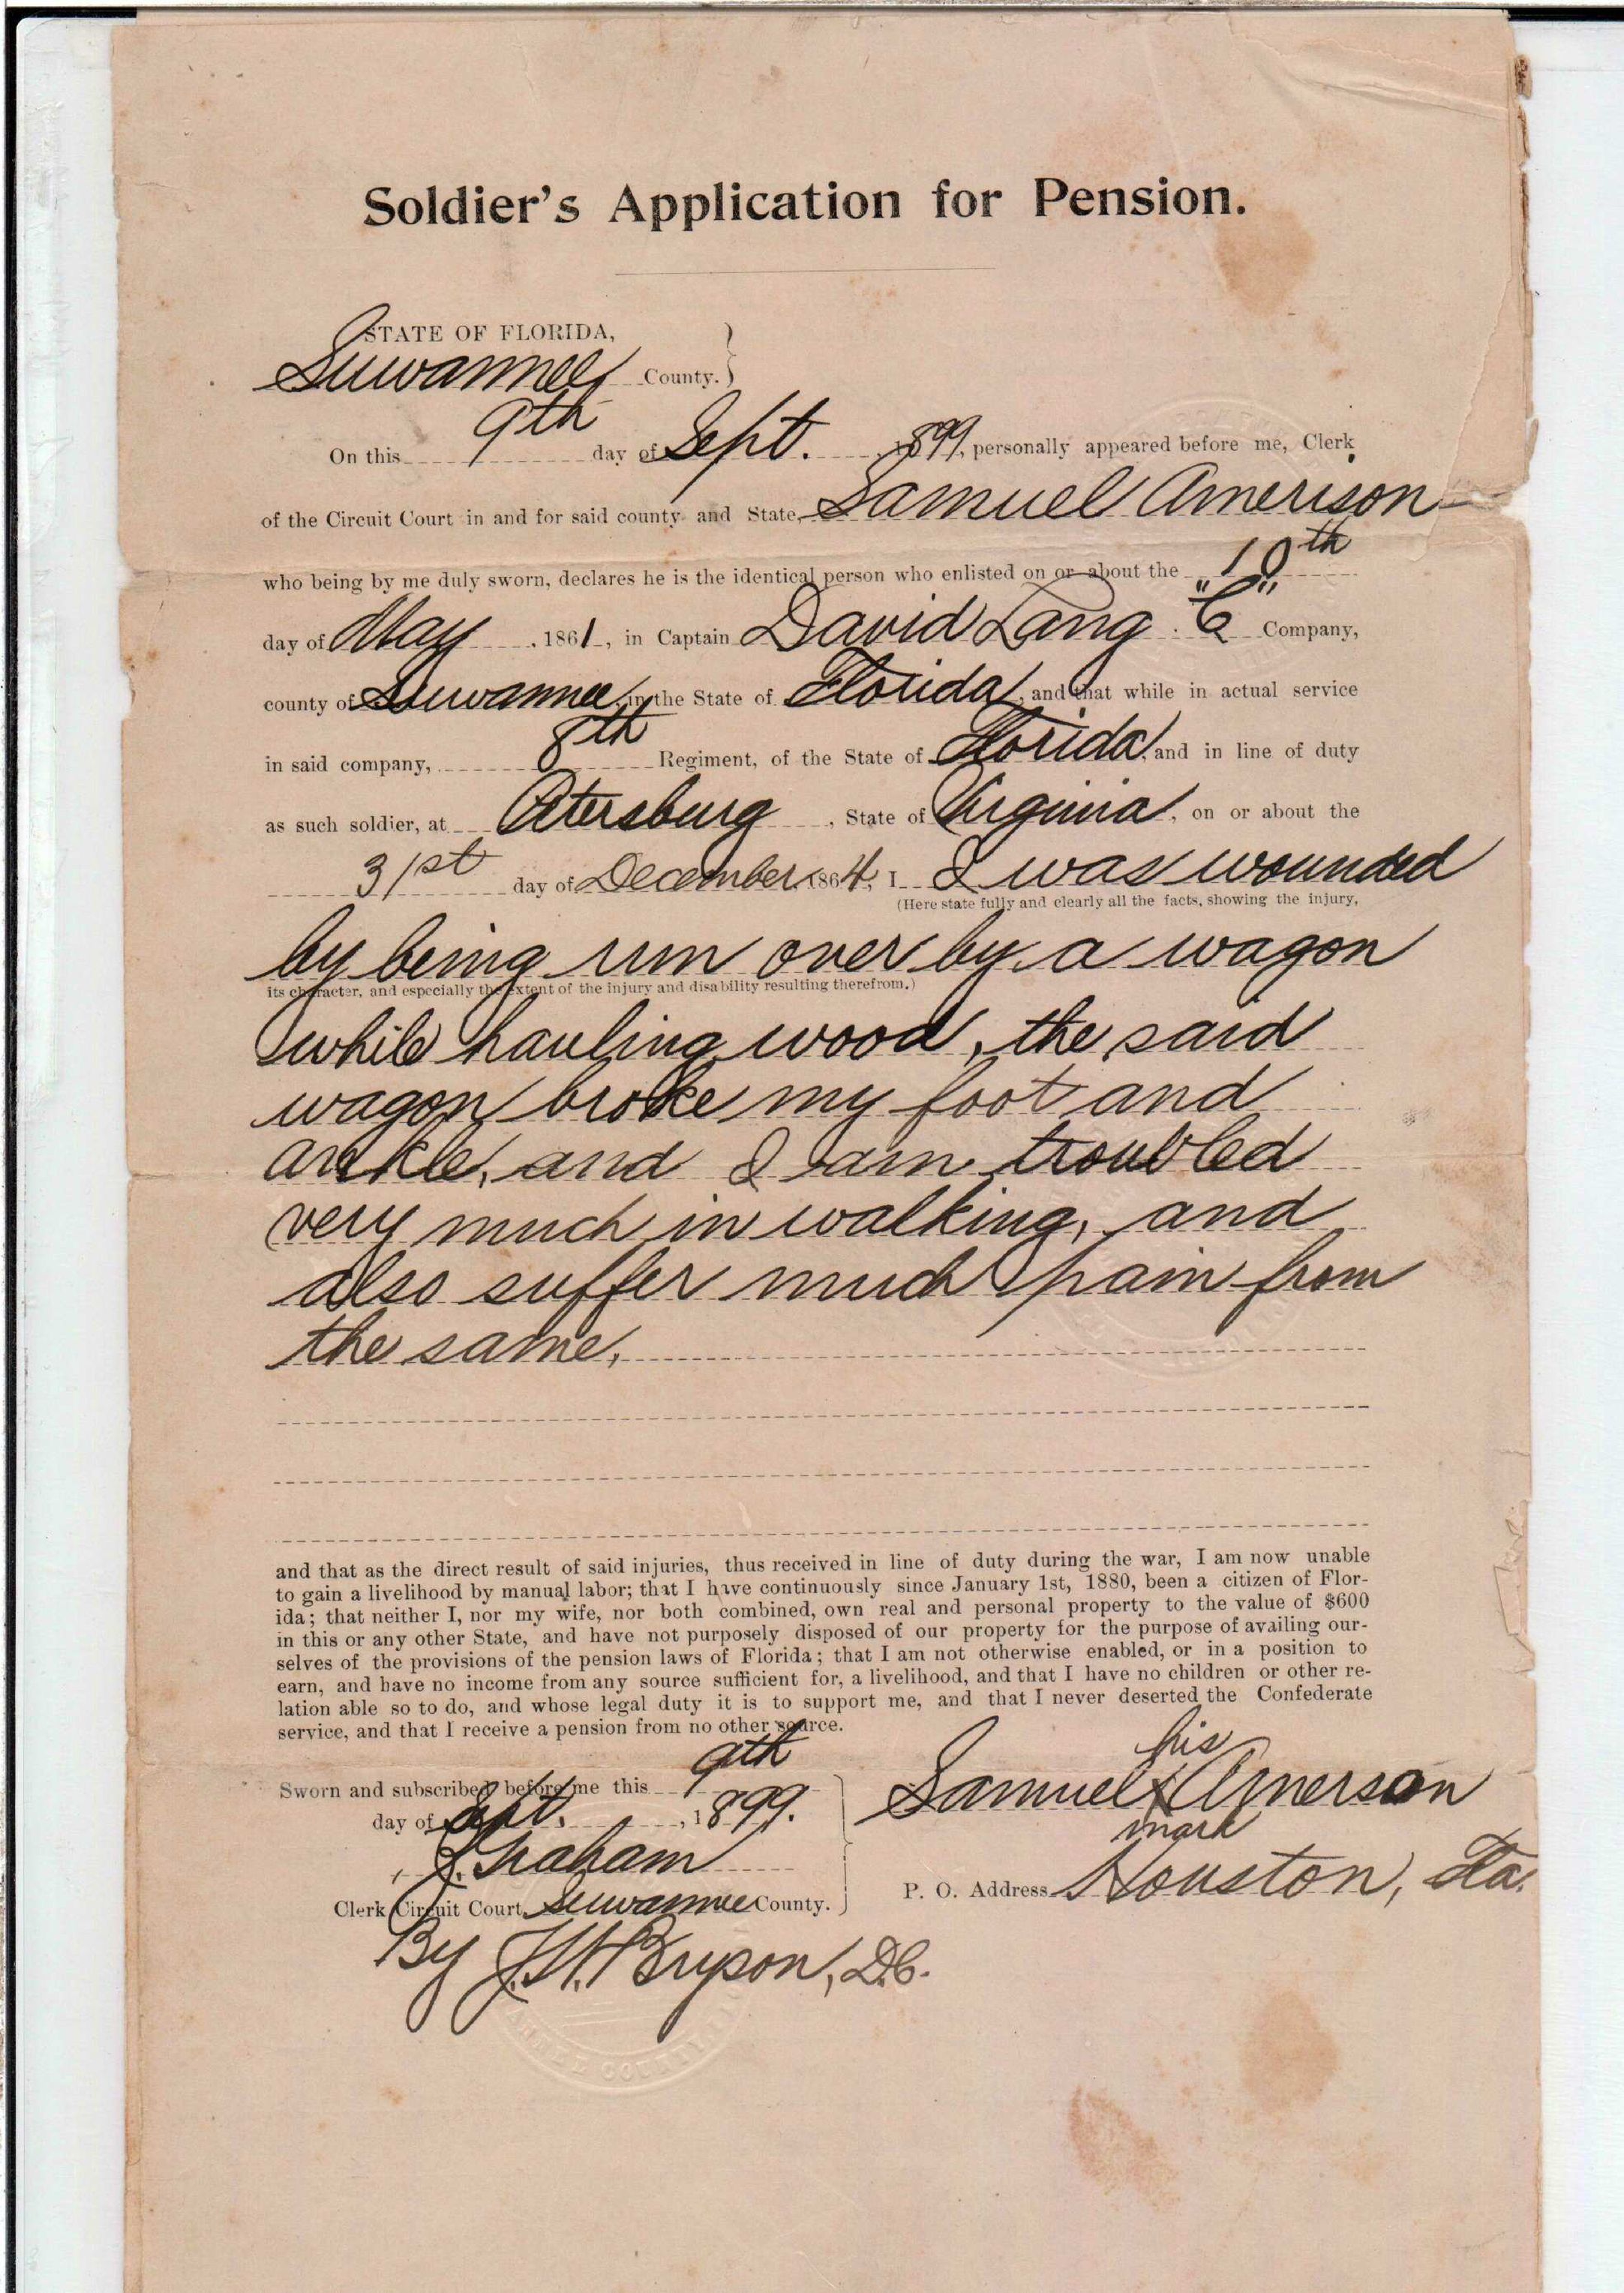 Soldier's Application for Pension.
STATE OF FLORIDA,
Suwannee County.
On this 9th day of Sept. 1899, personally appeared before me, Clerk
of the Circuit Court in and for said county and State, Samuel Amerison
who being by me duly sworn, declares he is the identical person who enlisted on or about the 10th
day of May, 1861, in Captain David Lang "C" Company,
county of Suwannee, in the State of Florida, and that while in actual service
in said company, 8th Regiment, of the State of Florida, and in line of duty
as such soldier, at Petersburg, State of Virginia, on or about the
31st day of December 1864, I I was wounded
(Here state fully and clearly all the facts, showing the injury,
by being run over by a wagon
its character, and especially the extent of the injury and disability resulting therefrom.)
while hauling wood, the said
wagon broke my foot and
ankle, and I am troubled
very much in walking, and
also suffer much pain from
the same.
and that as the direct result of said injuries, thus received in line of duty during the war, I am now unable
to gain a livelihood by manual labor; that I have continuously since January 1st, 1880, been a citizen of Flor-
ida; that neither I, nor my wife, nor both combined, own real and personal property to the value of $600
in this or any other State, and have not purposely disposed of our property for the purpose of availing our-
selves of the provisions of the pension laws of Florida; that I am not otherwise enabled, or in a position to
earn, and have no income from any source sufficient for, a livelihood, and that I have no children or other re-
lation able so to do, and whose legal duty it is to support me, and that I never deserted the Confederate
service, and that I receive a pension from no other source.
Sworn and subscribed before me this 9th
day of Sept. , 1899.
his
Samuel X Amerson
mark
Graham
Clerk Circuit Court, Suwannee County.
P. O. Address Houston, Fla.
By J.W. Bryson, D.C.
COUNTY